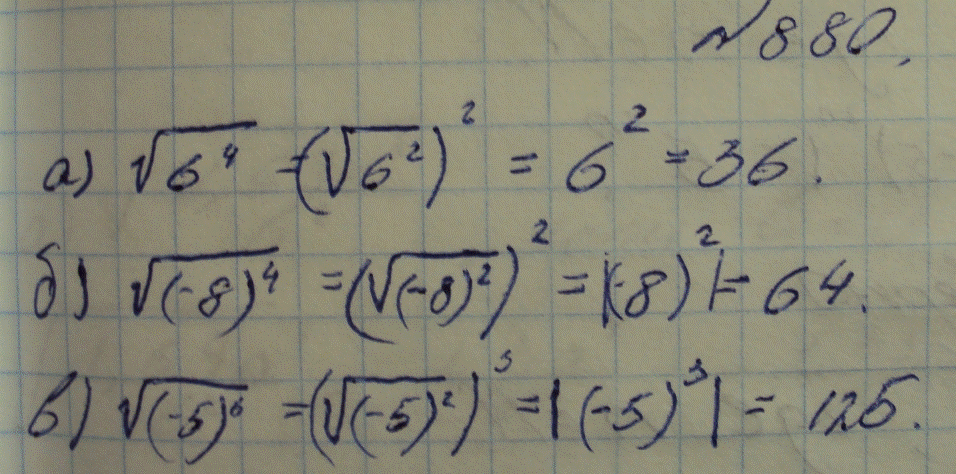 № 880.
а) √6⁴ = (√6²)² = 6² = 36.
б) √(-8)⁴ = (√(-8)²)² = |(-8)²| = 64.
в) √(-5)⁶ = (√(-5)²)³ = |(-5)³| = 125.